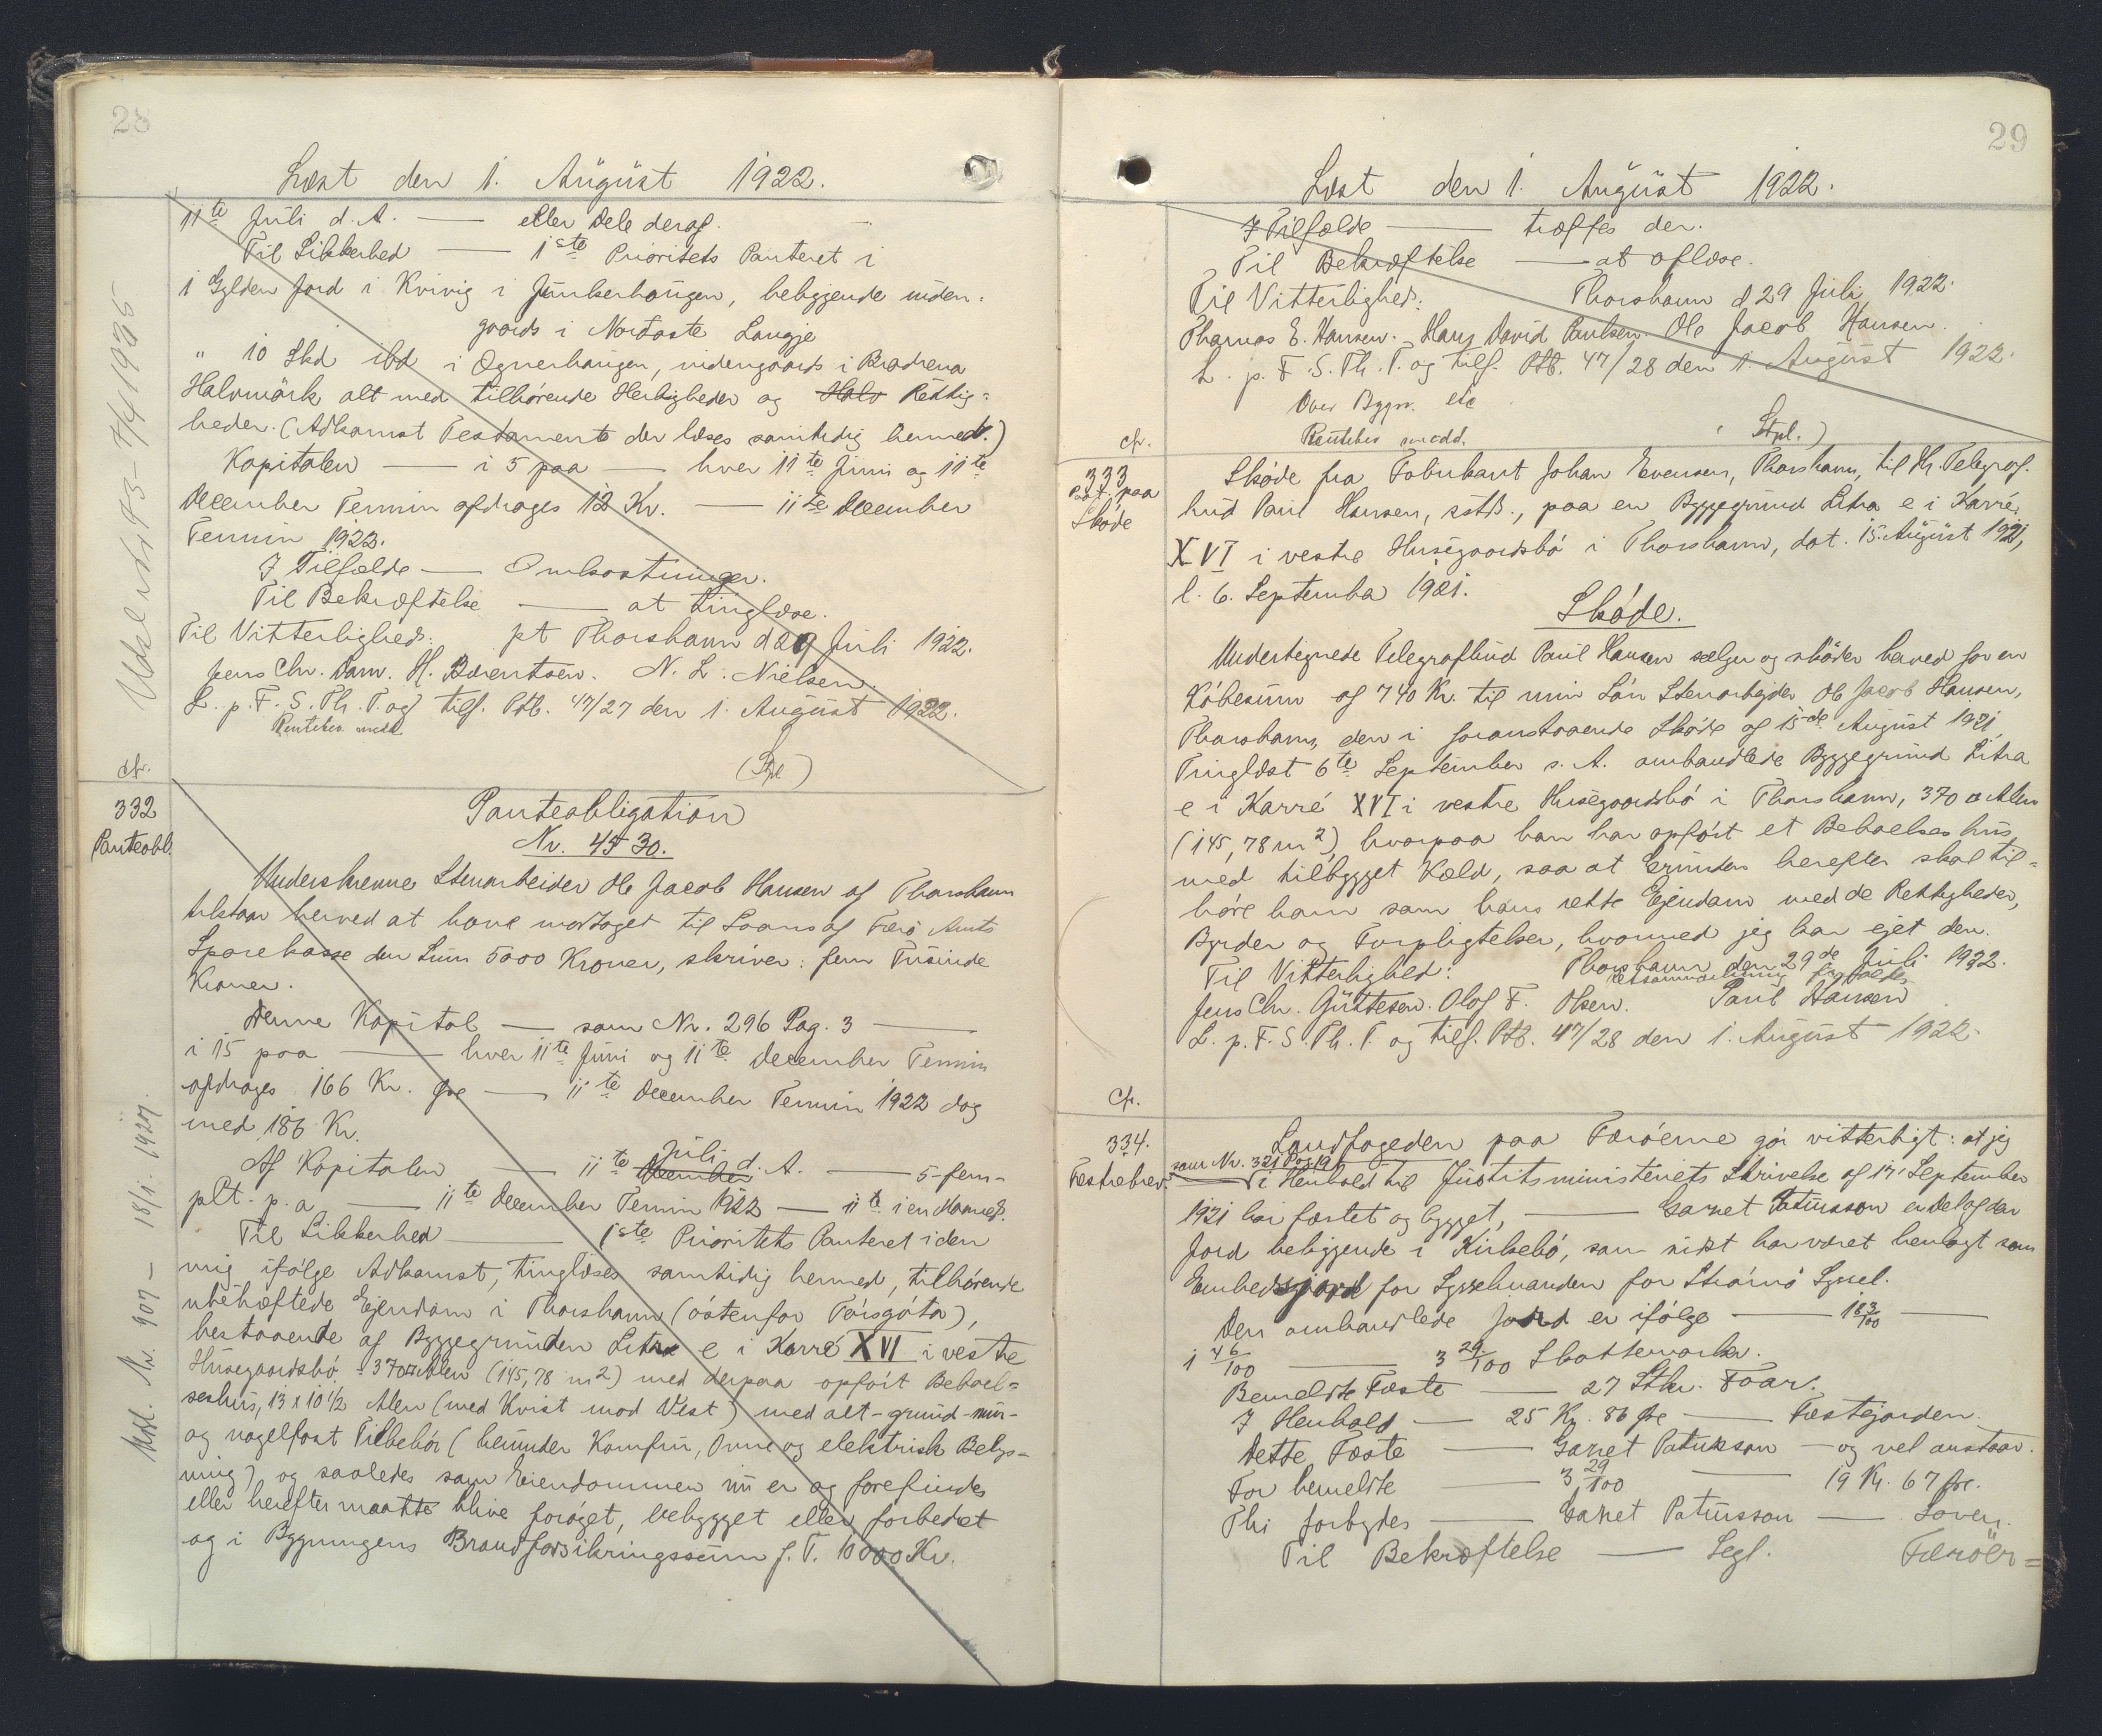 28
Læst den 1. August 1922.
11te Juli d. A. — eller Dele deraf.
Til Sikkerhed — 1ste Prioritets Panteret i
1 Gylden Jord i Kvivig i Junkerhaugen, beliggende inden-
gaards i Nordaste Laugje
" 10 Skd ibd i Ognerhaugen, indengaards i Bradrena
Halvmörk alt med tilhørende Herligheder og Halv Rettig=
heder. (Adkomst Testamente der læses samtidig hermed.)
Kapitalen — i 5 paa — hver 11te Juni og 11te
December Termin afdrages 12 Kr. — 11te December
Termin 1922.
I Tilfælde — Omkostninger.
Til Bekræftelse — at tinglæse.
Til Vitterlighed: pt Thorshavn d 29 Juli 1922.
Jens Chr. Dam. H. Bærentsen. N. L. Nielsen.
L. p. F. S. Th. T. og tilf. Ptb. 47/27 den 1. August 1922.
Rentebev. medd.
(Stpl)
cfr.
332
Panteobl.
Panteobligation
Nr. 4530.
Underskrevne Stenarbeider Ole Jacob Hansen af Thorshavn
tilstaar herved at have modtaget til Laans af Færø Amts
Sparekasse den Sum 5000 Kroner, skriver: fem Tusinde
Kroner.
Denne Kapital — som Nr. 296 Pag. 3 —
i 15 paa — hver 11te Juni og 11te December Termin
afdrages 166 Kr. Øre — 11te December Termin 1922 dog
med 186 Kr.
Af Kapitalen — 11te December Juli d. A. — 5-fem-
pCt. p. a — 11te December Termin 1922 — 11te i en Maaned.
Til Sikkerhed — 1ste Prioritets Panteret i den
mig ifølge Adkomst, tinglæses samtidig hermed, tilhørende
ubehæftede Ejendom i Thorshavn (östenfor Tórsgóta),
bestaaende af Byggegrunden Litra e i Karré XVI i vestre
Husegaardsbø. - 370 □ Alen (145,78 m2) med derpaa opført Beboel=
seshus, 13 x 10 1/2 Alen (med Kvist mod Vest) med alt-grund-mur-
og nagelfast Tilbehør (herunder Komfur, Ovne og elektrisk Belys=
ning) og saaledes som Eiendommen nu er og forefindes
eller herefter maatte blive forøget, bebygget eller forbedret
og i Bygningens Brandforsikringssum f. T. 10000 Kr.
Udslettet 73 - 7/4 1935
Udsl. Nr. 907 - 18/1. 1927.
29
Læst den 1. August 1922.
I Tilfælde — træffes der.
Til Bekræftelse — at aflæse.
Til Vitterlighed: Thorshavn d. 29 Juli 1922.
Thomas E. Hansen. Hans David Paulsen Ole Jacob Hansen.
L. p. F. S. Th. T. og tilf. Ptb. 47/28 den 1. August 1922.
Over Bygn. etc
Rentebev. medd. (Stpl.)
cfr.
333
Paat. paa
Skøde
Skøde fra Fabrikant Johan Evensen, Thorshavn, til Hr. Telegraf-
bud Paul Hansen, sstds., paa en Byggegrund Litra e i Karré
XVI i vestre Husegaardsbø i Thorshavn, dat. 15. August 1921,
l. 6. September 1921.
Skøde.
Undertegnede Telegrafbud Paul Hansen sælger og skøder herved for en
Købesum af 740 Kr. til min Søn Stenarbejder Ole Jacob Hansen,
Thorshavn, den i foranstaaende Skøde af 15de August 1921,
Tinglæst 6te September s. A. omhandlede Byggegrund Litra
e i Karré XVI i vestre Husegaardsbø i Thorshavn, 370 □ Alen
(145,78 m2), hvorpaa han har opført et Beboelseshus
med tilbygget Kæld, saa at Grunden herefter skal til=
høre ham som hans rette Ejendom med de Rettigheder,
Byrder og Forpligtelser, hvormed jeg har ejet den.
Til Vitterlighed: Thorshavn den 29de Juli 1922.
Jens Chr. Guttesen. Olaf F. Olsen. Paul Hansen
L. p. F. S. Th. T. og tilf. Ptb. 47/28 den 1. August 1922.
Cfr.
334.
Fæstebrev.
Landfogeden paa Færøerne gør vitterligt: at jeg
som Nr. 321 Pag 19
— i Henhold til Justitsministeriets Skrivelse af 17' September
1921 har fæstet og bygget, — Gazet Patursson en Del af den
Jord beliggende i Kirkebø, som sidst har været henlagt som
Embedsjord for Sysselmanden for Strømø Syssel.
Den omhandlede Jord er ifølge — 18 3/100 —
1 46/100 — 3 29/100 Skattemarker.
Bemeldte Fæste — 27 Stkr. Faar.
I Henhold — 25 Kr. 86 Øre — Fæstejorden.
Dette Fæste — Gazet Patursson — og vel anstaar.
For bemeldte — 3 29/100 — 19 Kr. 67 Øre.
Thi forbydes — Gazet Patursson — Loven.
Til Bekræftelse — Segl. Færöer=